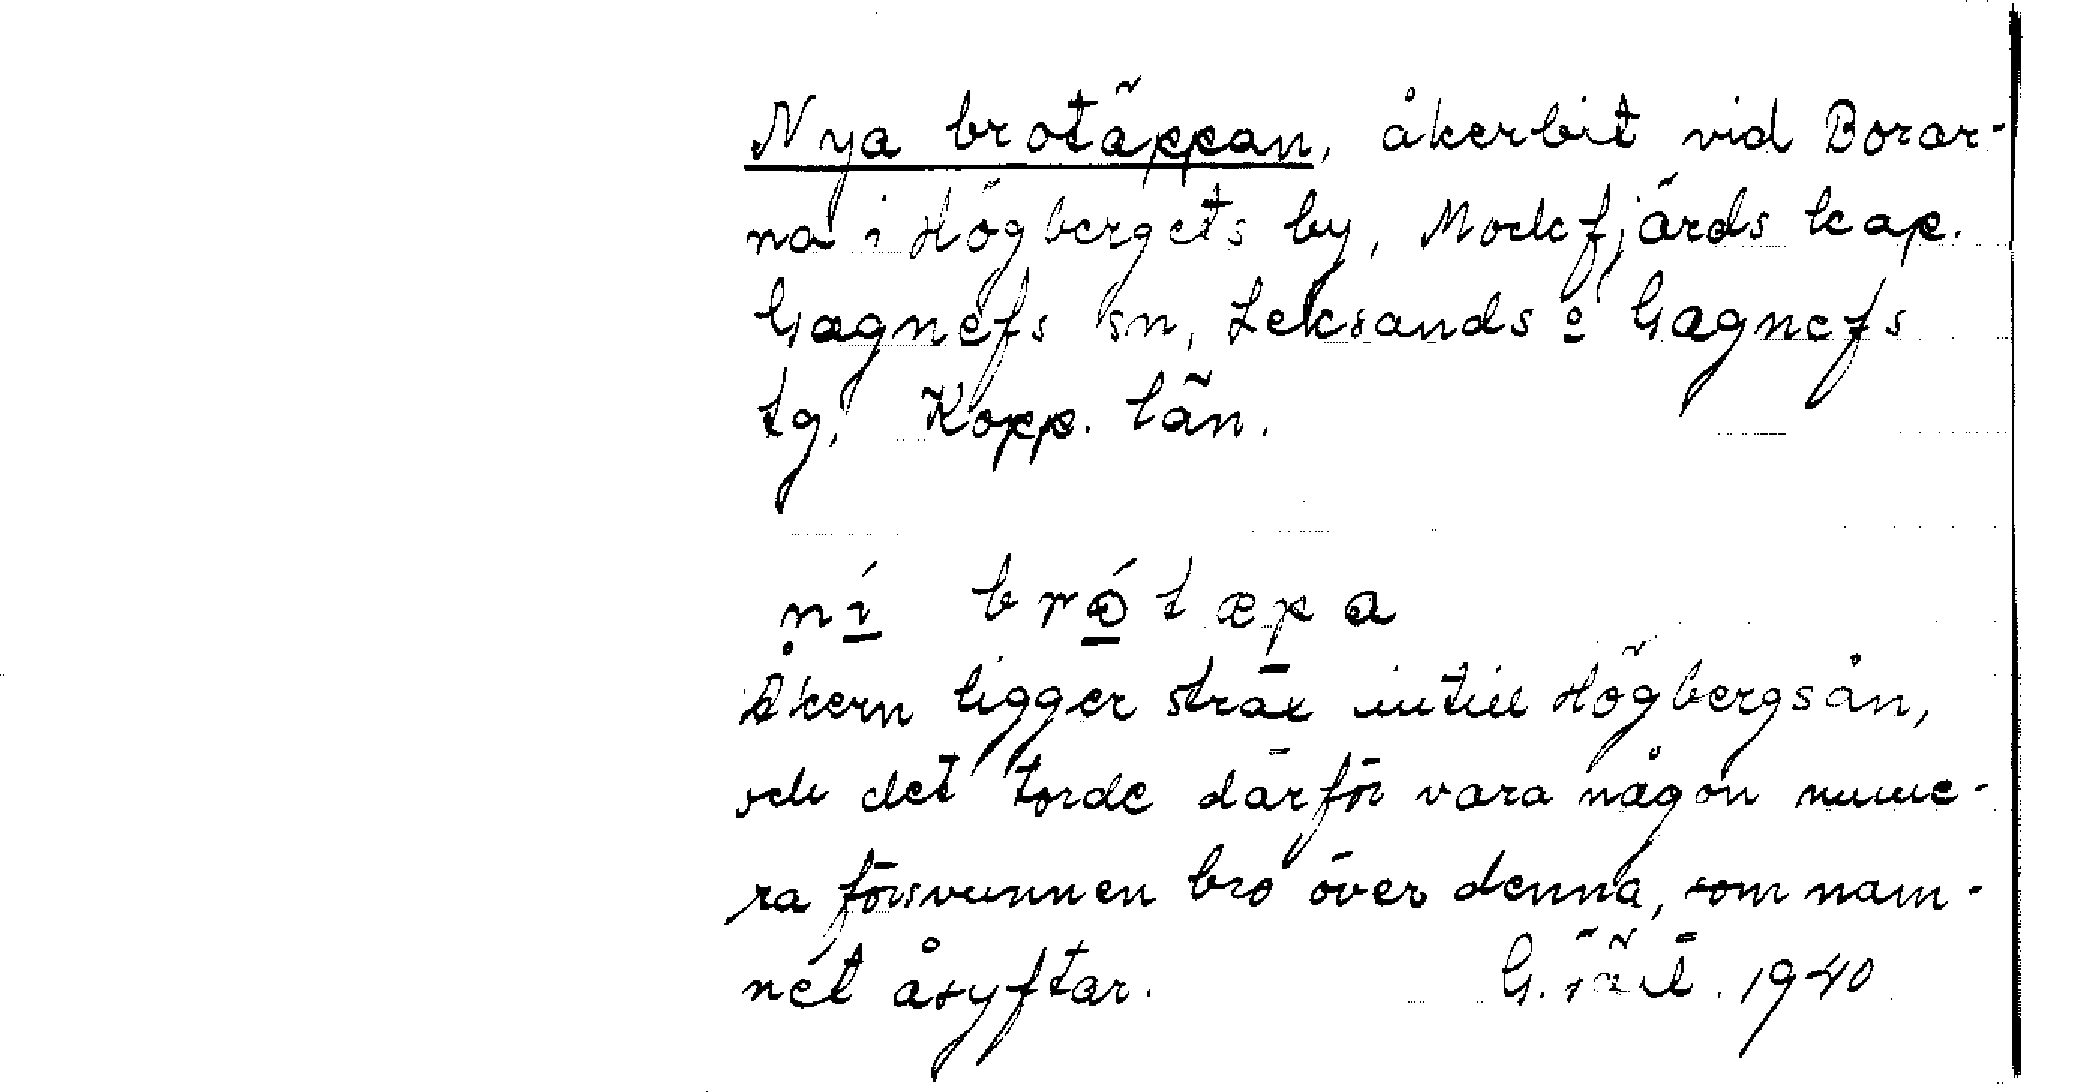 Nya brotäppan, åkerbit vid Borar-
na i Högbergets by, Mockfjärds kap.
Gagnefs sn, Leksands o Gagnefs
tg, Kopp. län.
ní brótæpa
Åkern ligger strax intill Högbergsån,
och det torde därför vara någon nume-
ra försvunnen bro över denna, som nam-
net åsyftar. G. 1940